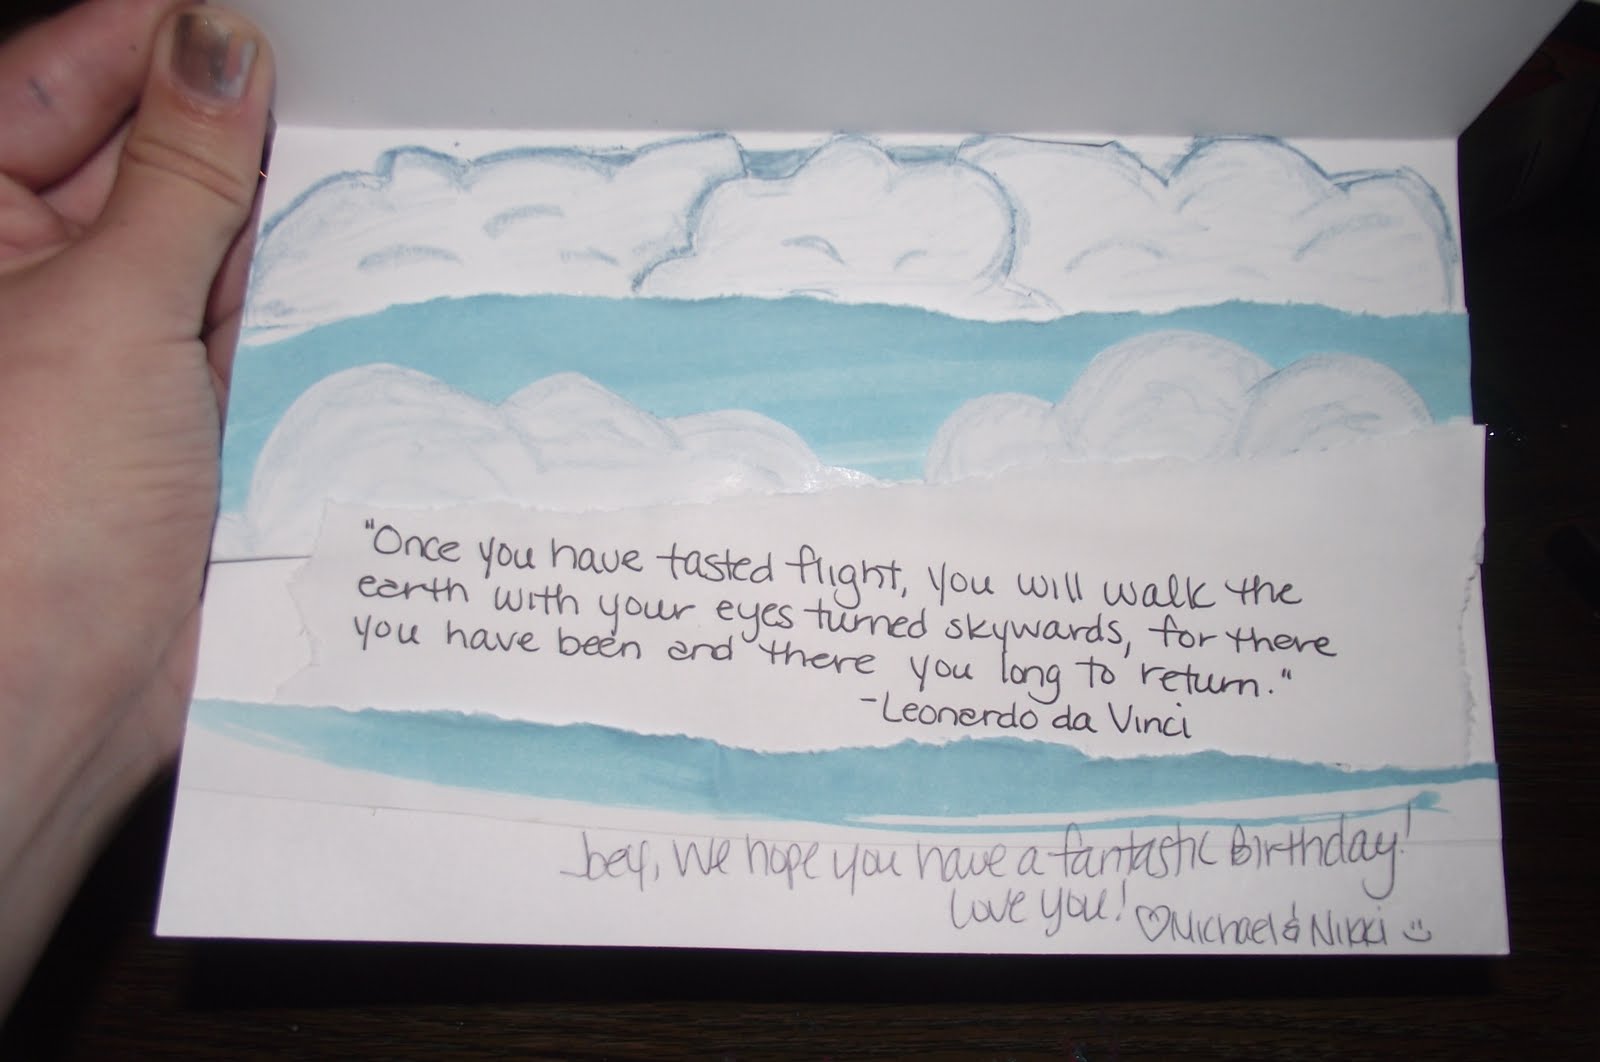 "Once you have tasted flight, you will walk the
earth with your eyes turned skywards, for there
you have been and there you long to return."
-Leonardo da Vinci
Joey, We hope you have a fantastic Birthday!
Love you! ♡Michael & Nikki :)